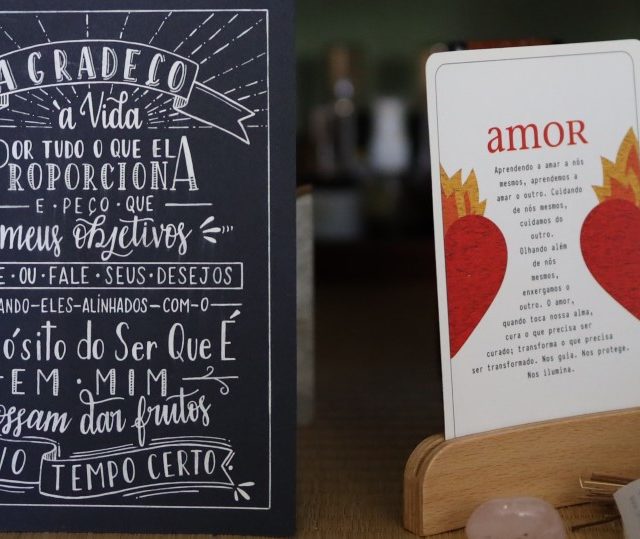 AGRADEÇO
à Vida
POR TUDO O QUE ELA
PROPORCIONA
E · PEÇO · QUE
meus objetivos
E · OU · FALE · SEUS · DESEJOS
ANDO-ELES-ALINHADOS-COM-O
ósito do Ser Que É
EM · MIM
ossam dar frutos
TEMPO CERTO
amor
Aprendendo a amar a nós
mesmos, aprendemos a
amar o outro. Cuidando
de nós mesmos,
cuidamos do
outro.
Olhando além
de nós
mesmos,
enxergamos o
outro. O amor,
quando toca nossa alma,
cura o que precisa ser
curado; transforma o que precisa
ser transformado. Nos guia. Nos protege.
Nos ilumina.